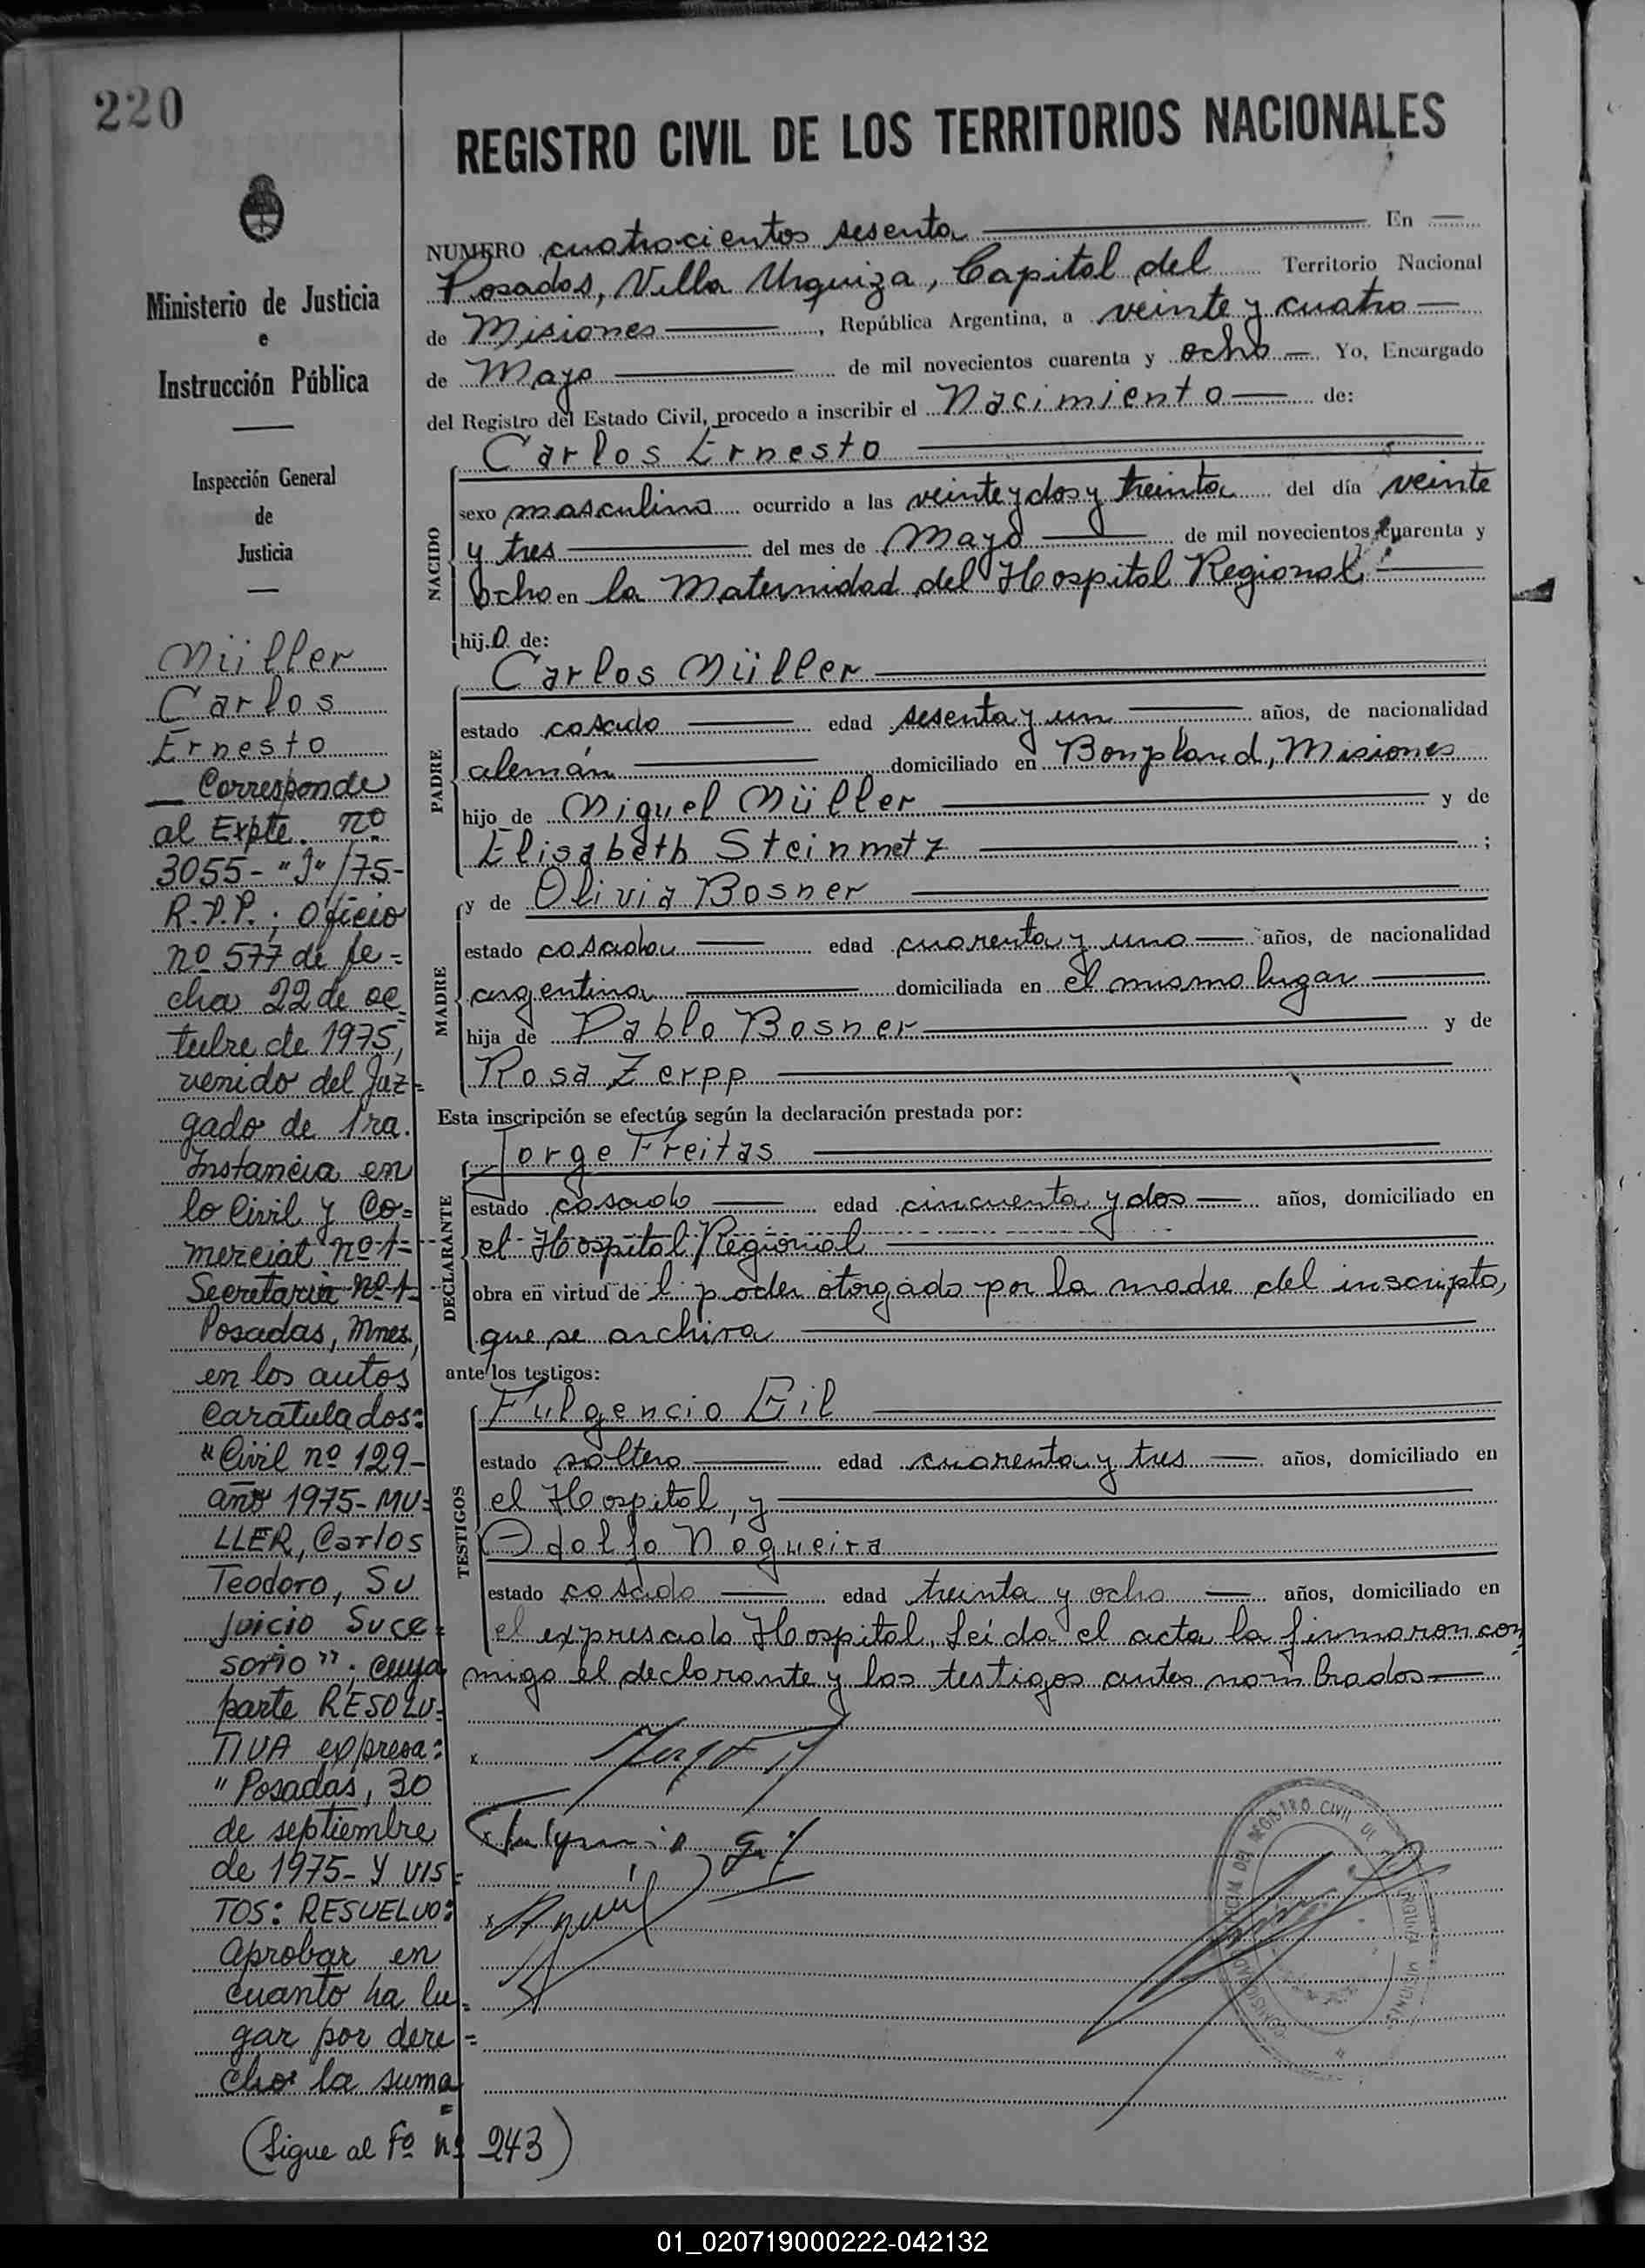 220
REGISTRO CIVIL DE LOS TERRITORIOS NACIONALES
Ministerio de Justicia
e
Instrucción Pública
Inspección General
de
Justicia
Müller
Carlos
Ernesto
Corresponde
al Expte. nº
3055-"J"/75-
R.P.P.; Oficio
nº 577 de fe=
cha 22 de oc=
tubre de 1975,
venido del Juz=
gado de 1ra.
Instancia en
lo Civil y Co=
mercial nº 1=
Secretaria Nº 1-
Posadas, Mnes,
en los autos
Caratulados:
"Civil nº 129-
año 1975-MU=
LLER, Carlos
Teodoro, Su
Juicio Suce=
sorio"; cuya
parte RESOLU=
TIVA expresa:
"Posadas, 30
de septiembre
de 1975- Y VIS=
TOS: RESUELVO:
Aprobar en
cuanto ha lu=
gar por dere=
cho la suma=
(Sigue al Fº nº 243)
NUMERO cuatrocientos sesenta En
Posadas, Villa Urquiza, Capital del Territorio Nacional
de Misiones, República Argentina, a veinte y cuatro
de Mayo de mil novecientos cuarenta y ocho Yo, Encargado
del Registro del Estado Civil, procedo a inscribir el Nacimiento de:
Carlos Ernesto
NACIDO
sexo masculino ocurrido a las veinte y dos y treinta del día veinte
y tres del mes de Mayo de mil novecientos cuarenta y
ocho en la Maternidad del Hospital Regional
hijo de:
Carlos Müller
PADRE
estado casado edad sesenta y un años, de nacionalidad
alemán domiciliado en Bonpland, Misiones
hijo de Miguel Müller y de
Elisabeth Steinmetz ;
y de Olivia Bosner
MADRE
estado casada edad cuarenta y uno años, de nacionalidad
argentina domiciliada en el mismo lugar
hija de Pablo Bosner y de
Rosa Zerpp
Esta inscripción se efectúa según la declaración prestada por:
Jorge Freitas
DECLARANTE
estado casado edad cincuenta y dos años, domiciliado en
el Hospital Regional
obra en virtud de l poder otorgado por la madre del inscripto,
que se archiva
ante los testigos:
Fulgencio Gil
TESTIGOS
estado soltero edad cuarenta y tres años, domiciliado en
el Hospital, y
Adolfo Nogueira
estado casado edad treinta y ocho años, domiciliado en
el expresado Hospital. Leída el acta la firmaron con
migo el declarante y los testigos antes nombrados
Fulgencio Gil
REGISTRO CIVIL
01_020719000222-042132